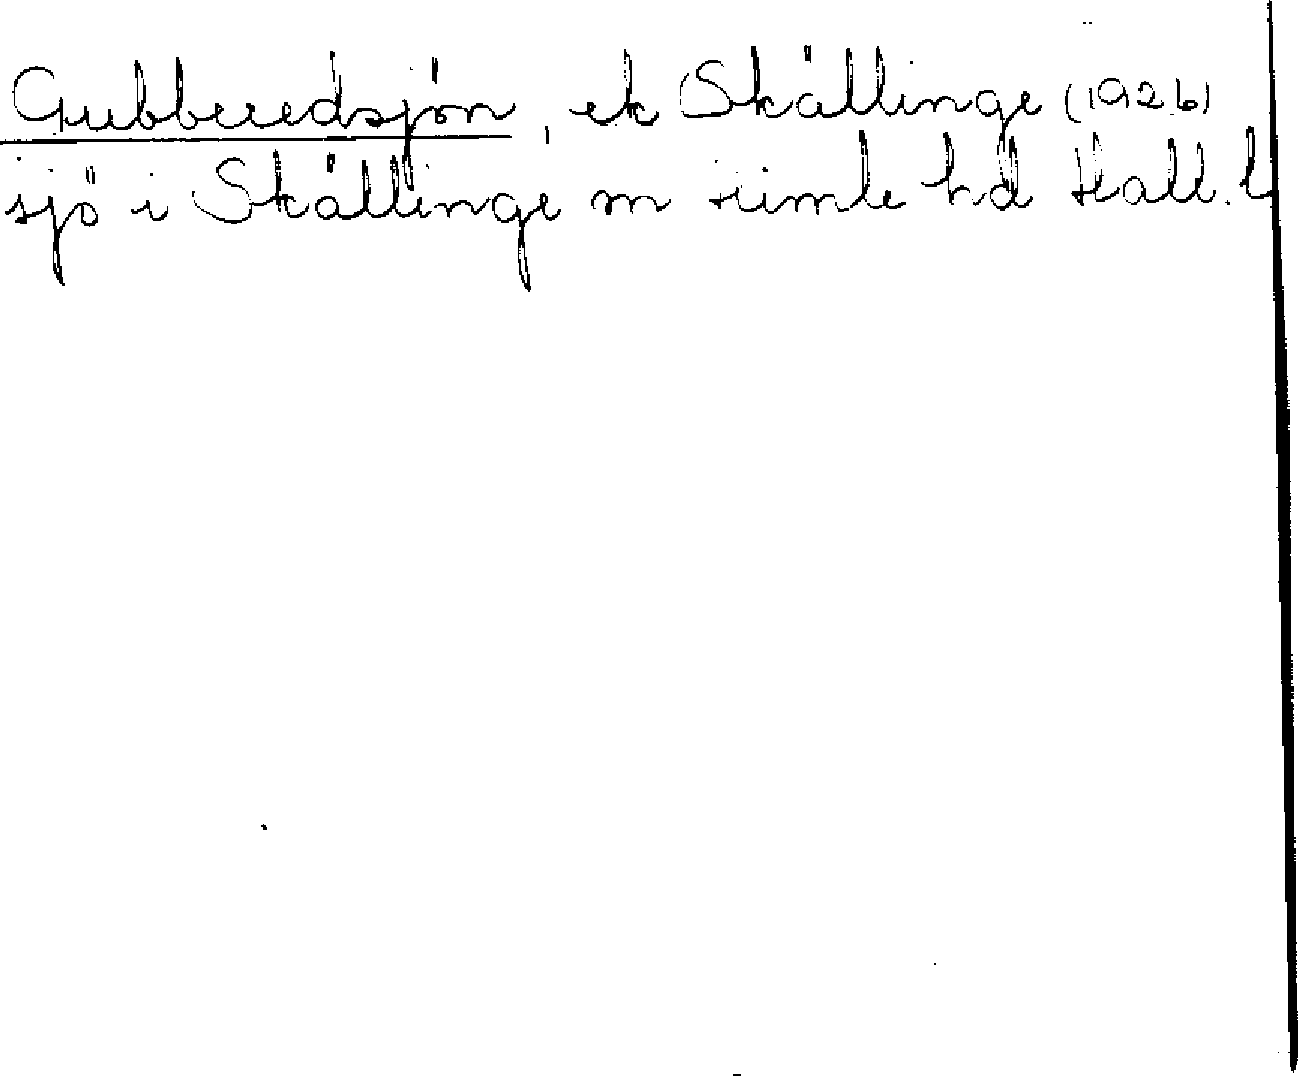 Gubberedsjön, ek Skällinge (1926)
sjö i Skällinge sn Himle hd Hall. l